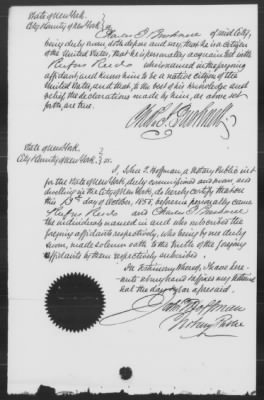 State of New York
City & County of New York } ss
Charles S. of said City,
being duly sworn, doth depose and say, that he is a citizen
of the United States, that he is personally acquainted with
Rufus who executed the foregoing
affidavit and knows him to be a native citizen of the
United States, and that to the best of his knowledge and
belief, the declarations made by him, as above set
forth, are true.
Chas S.
State of New York
City & County of New York } ss.
I, John Hoffman, a Notary Public in &
for the State of New York, duly commissioned and sworn, and
dwelling in the City of New York, do hereby certify that on
this day of October, 1858, before me personally came
Rufus and Charles S.
the individuals named in and who subscribed the
foregoing affidavits respectively, who being by me duly
sworn, made solemn oath to the truth of the foregoing
affidavits by them respectively subscribed.
In testimony whereof, I have here-
unto set my hand & affixed my Notarial
Seal the day & year aforesaid.
John Hoffman
Notary Public